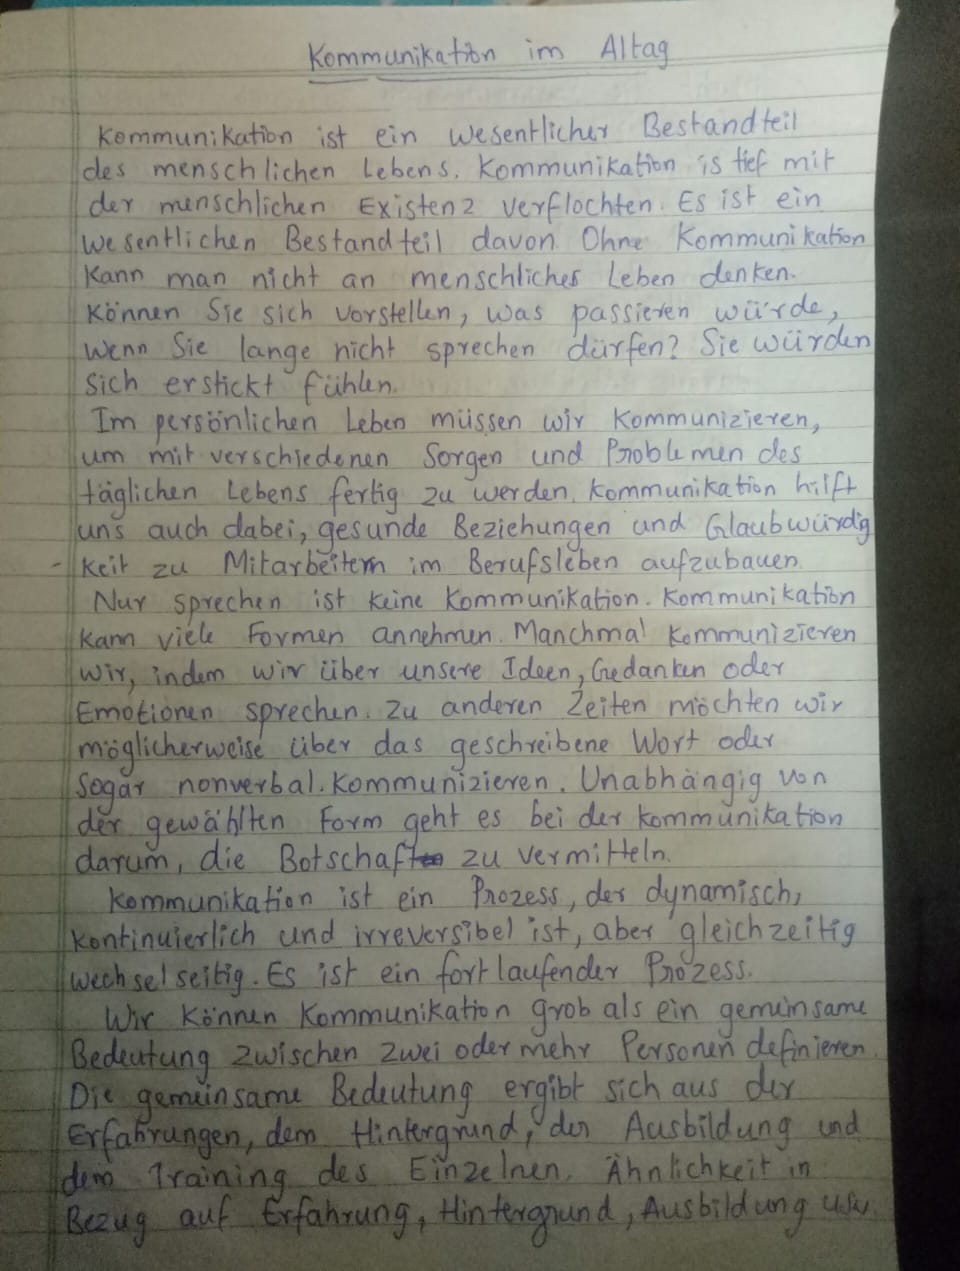 Kommunikation im Altag
Kommunikation ist ein wesentlicher Bestandteil
des menschlichen Lebens. Kommunikation is tief mit
der menschlichen Existenz verflochten. Es ist ein
wesentlichen Bestandteil davon. Ohne Kommunikation
kann man nicht an menschliches Leben denken.
Können Sie sich vorstellen, was passieren würde,
wenn Sie lange nicht sprechen dürfen? Sie würden
sich erstickt fühlen.
Im persönlichen Leben müssen wir kommunizieren,
um mit verschiedenen Sorgen und Problemen des
täglichen Lebens fertig zu werden. Kommunikation hilft
uns auch dabei, gesunde Beziehungen und Glaubwürdig
- keit zu Mitarbeitern im Berufsleben aufzubauen.
Nur sprechen ist keine Kommunikation. Kommunikation
kann viele Formen annehmen. Manchmal kommunizieren
wir, indem wir über unsere Ideen, Gedanken oder
Emotionen sprechen. Zu anderen Zeiten möchten wir
möglicherweise über das geschreibene Wort oder
sogar nonverbal. kommunizieren. Unabhängig von
der gewählten Form geht es bei der kommunikation
darum, die Botschaft zu vermitteln.
Kommunikation ist ein Prozess, der dynamisch,
kontinuierlich und irreversibel ist, aber gleichzeitig
wechselseitig. Es ist ein fortlaufender Prozess.
Wir können Kommunikation grob als ein gemeinsame
Bedeutung zwischen zwei oder mehr Personen definieren.
Die gemeinsame Bedeutung ergibt sich aus der
Erfahrungen, dem Hintergrund, der Ausbildung und
dem Training des Einzelnen. Ähnlichkeit in
Bezug auf Erfahrung, Hintergrund, Ausbildung usw.